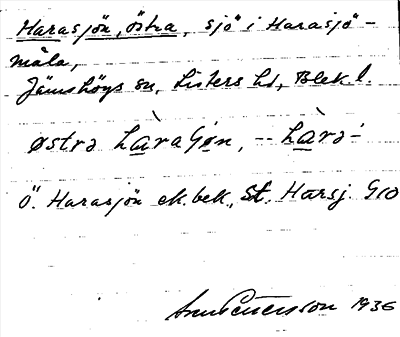 Harasjön, östra, sjö i Harasjö-
måla,
Jämshögs sn, Listers hd, Blek. l.
østrə hàraɧøn, -- hàrə-
Ö. Harasjön ek. bek., St. Harsj. G10
1936